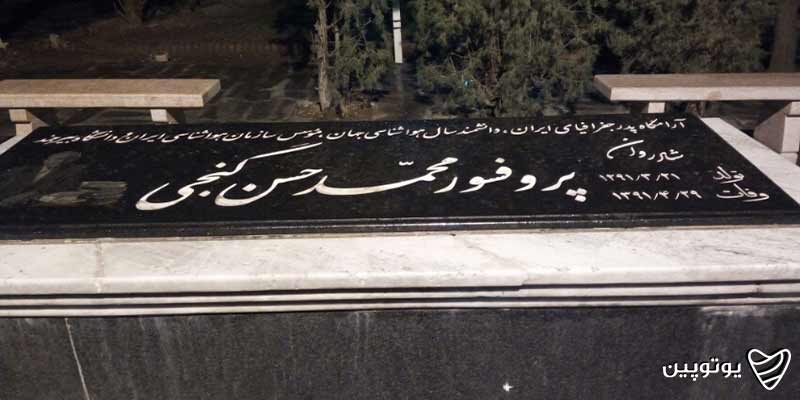 آرامگاه پدر جغرافیای ایران، دانشمند سال هواشناسی جهان، مؤسس سازمان هواشناسی ایران و دانشگاه بیرجند
شادروان
پروفسور محمد حسن گنجی
تولد ۱۲۹۱/۳/۲۱
وفات ۱۳۹۱/۴/۲۹
یوتوپین